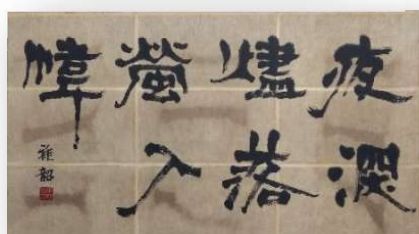 夜深
燼落
螢入
幃
雅韶